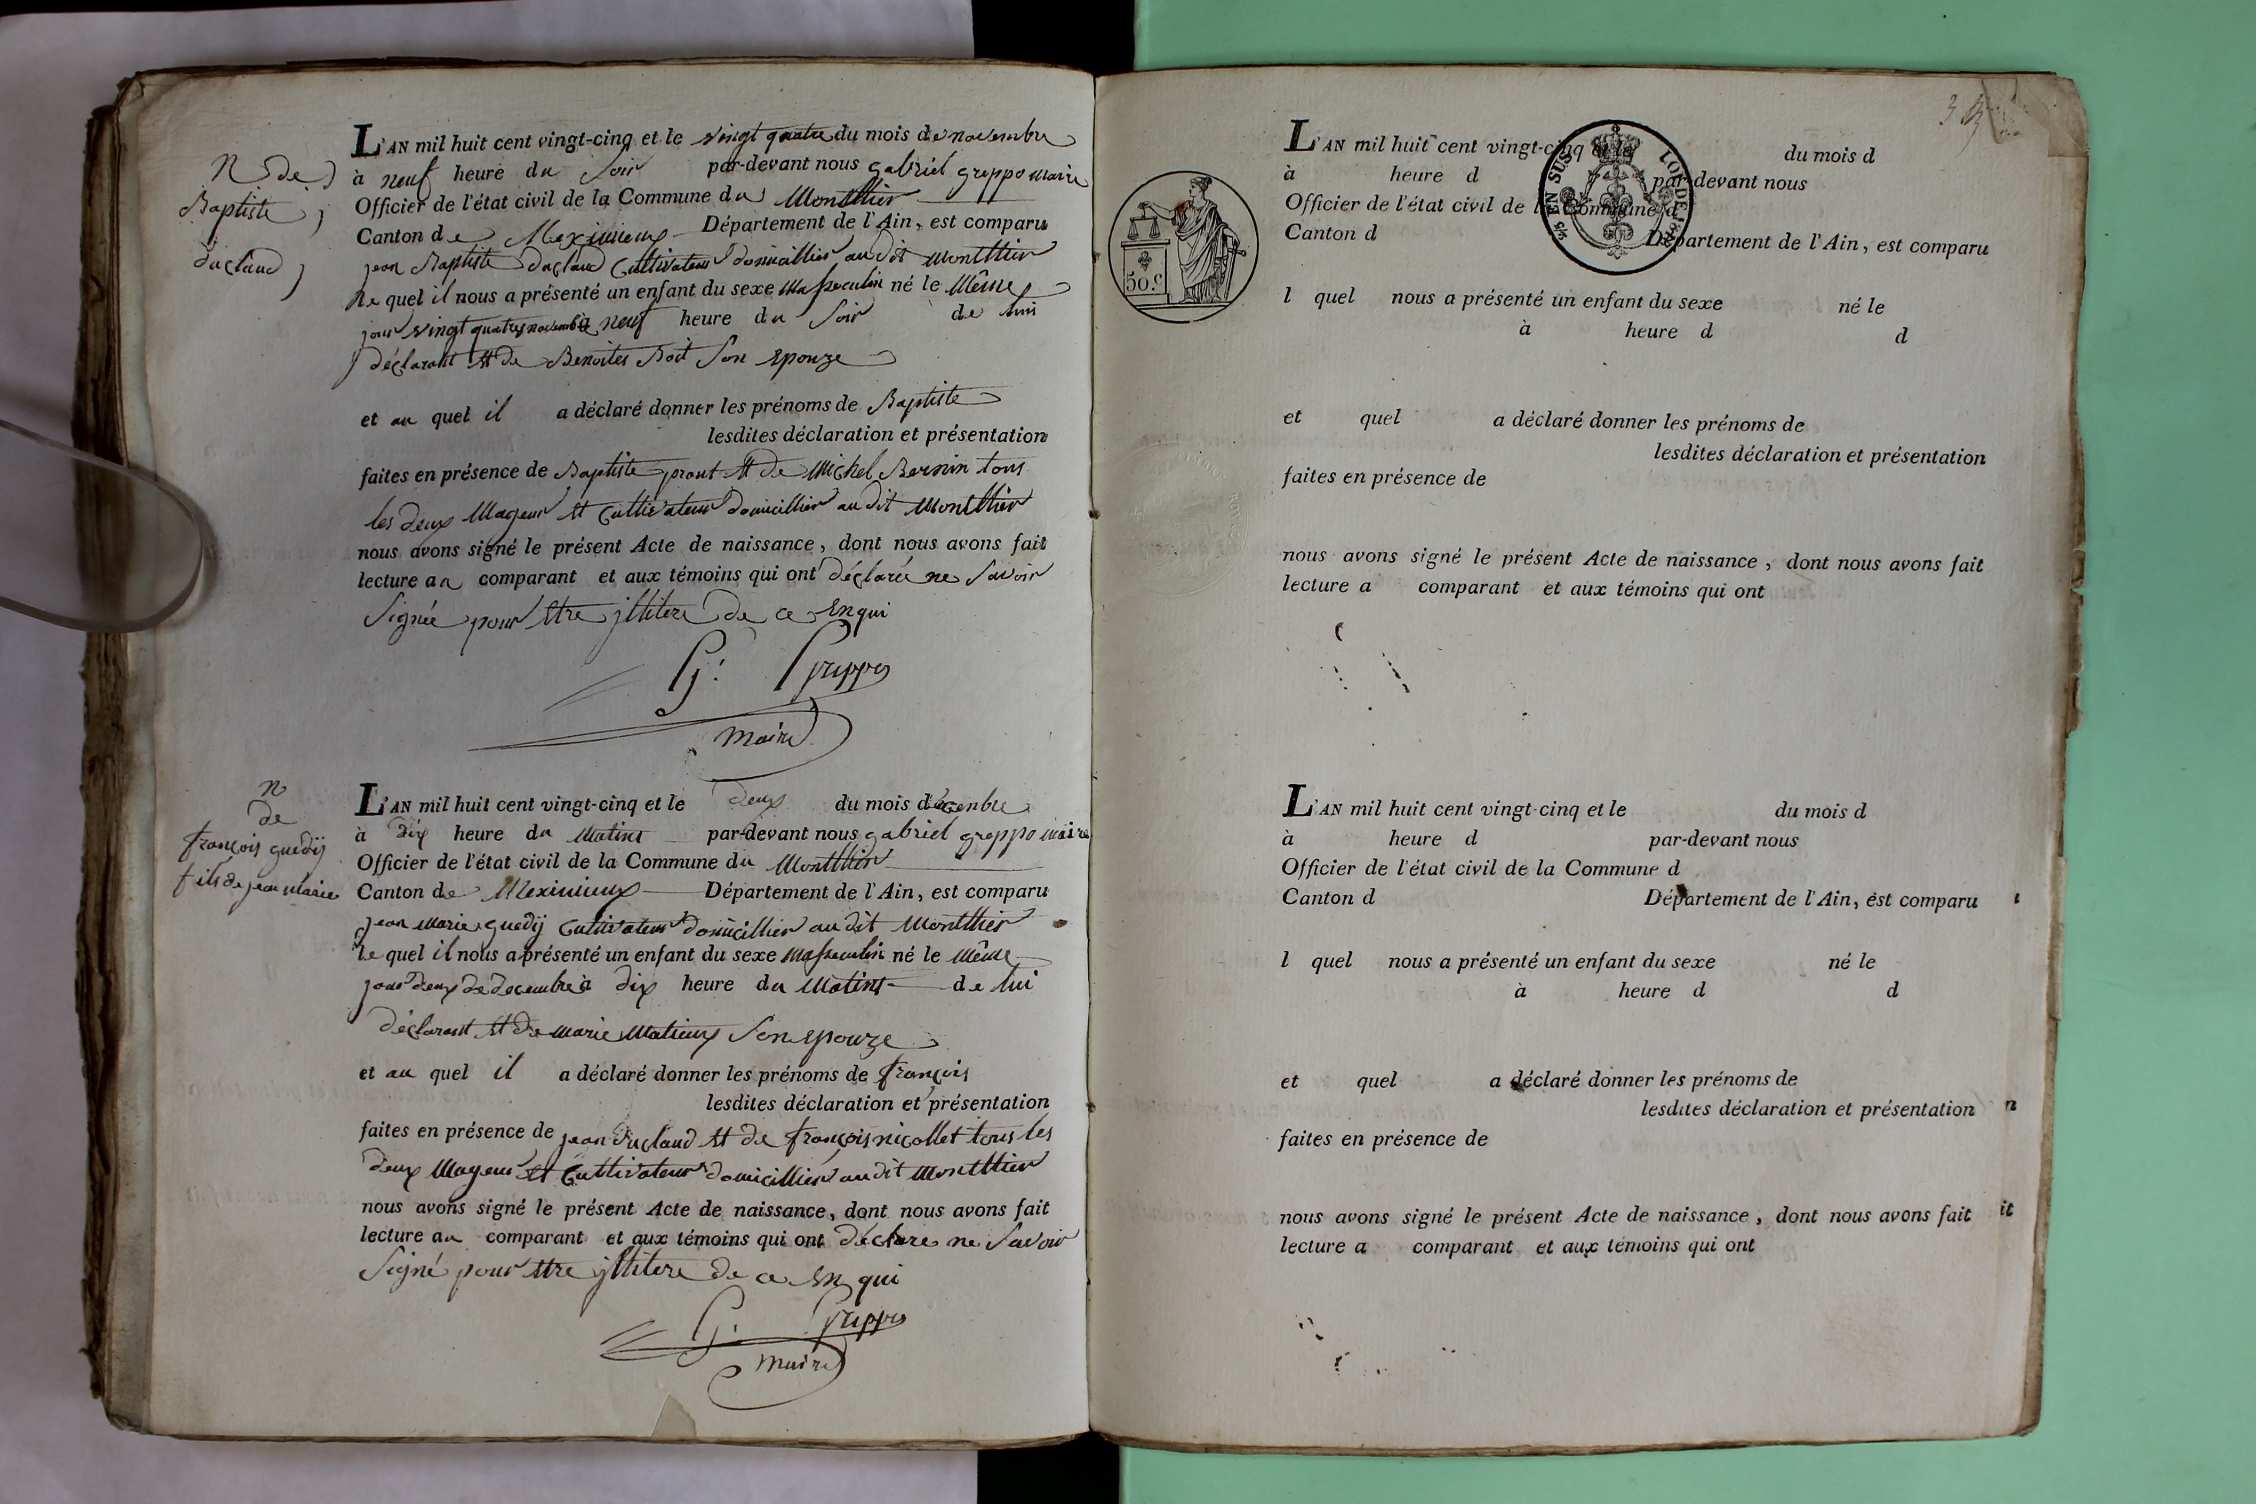 N de
Baptiste
duclaud
L'AN mil huit cent vingt-cinq et le vingt quatre du mois de novembre
à neuf heure du Soir par-devant nous gabriel greppo maire
Officier de l'état civil de la Commune du Montthier
Canton de Meximieux Département de l'Ain, est comparu
jean Baptiste duclaud Cultivateur domicillier au dit Montthier
le quel il nous a présenté un enfant du sexe Masseculin né le Même
jour vingt quatre novembre à neuf heure du Soir de lui
déclarant et de Benoites Boit Son Epouze
et au quel il a déclaré donner les prénoms de Baptiste
lesdites déclaration et présentation
faites en présence de Baptiste prout et de Michel Bernin tous
les deux Mageur et Cultivateur domicillier au dit Montthier
nous avons signé le présent Acte de naissance, dont nous avons fait
lecture au comparant et aux témoins qui ont déclaré ne Savoir
Signée pour être jllitere de ce Enqui
G: Greppo
maire
n
de
françois guedij
fils de jean marie
L'AN mil huit cent vingt-cinq et le deux du mois décenbre
à dix heure du Matint par-devant nous gabriel greppo maire
Officier de l'état civil de la Commune du Montthier
Canton de Meximieux Département de l'Ain, est comparu
jean marie guedij Cultivateur domicillier au dit Montthier
le quel il nous a présenté un enfant du sexe Masseculin né le Même
jour deux de decembre à dix heure du Matint de lui
déclarant et de marie Matieux Son Epouze
et au quel il a déclaré donner les prénoms de françois
lesdites déclaration et présentation
faites en présence de jean duclaud et de françois nicollet tous les
deux Mageur et Cultivateur domicillier au dit Montthier
nous avons signé le présent Acte de naissance, dont nous avons fait
lecture au comparant et aux témoins qui ont déclare ne Savoir
Signé pour être jllitere de ce En qui
G: Greppo
maire
50 C
5/5 EN SUS LOI DE
L'AN mil huit cent vingt-cinq et le du mois d
à heure d par-devant nous
Officier de l'état civil de la Commune d
Canton d Département de l'Ain, est comparu
l quel nous a présenté un enfant du sexe né le
à heure d d
et quel a déclaré donner les prénoms de
lesdites déclaration et présentation
faites en présence de
nous avons signé le présent Acte de naissance, dont nous avons fait
lecture a comparant et aux témoins qui ont
L'AN mil huit cent vingt-cinq et le du mois d
à heure d par-devant nous
Officier de l'état civil de la Commune d
Canton d Département de l'Ain, est comparu
l quel nous a présenté un enfant du sexe né le
à heure d d
et quel a déclaré donner les prénoms de
lesdites déclaration et présentation n
faites en présence de
nous avons signé le présent Acte de naissance, dont nous avons fait it
lecture a comparant et aux témoins qui ont